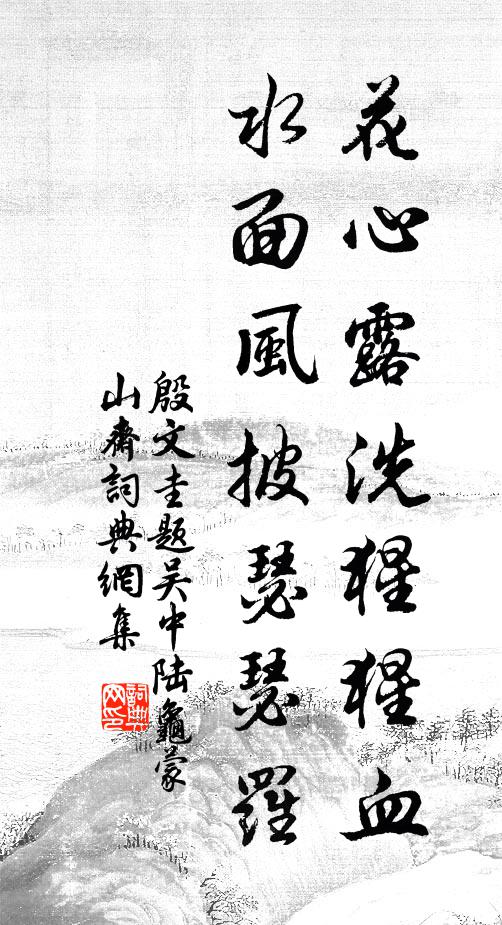 花心露洗猩猩血
水面風披瑟瑟羅
殷文圭題吳中陸龜蒙
山齋詞典網集
詞典網印